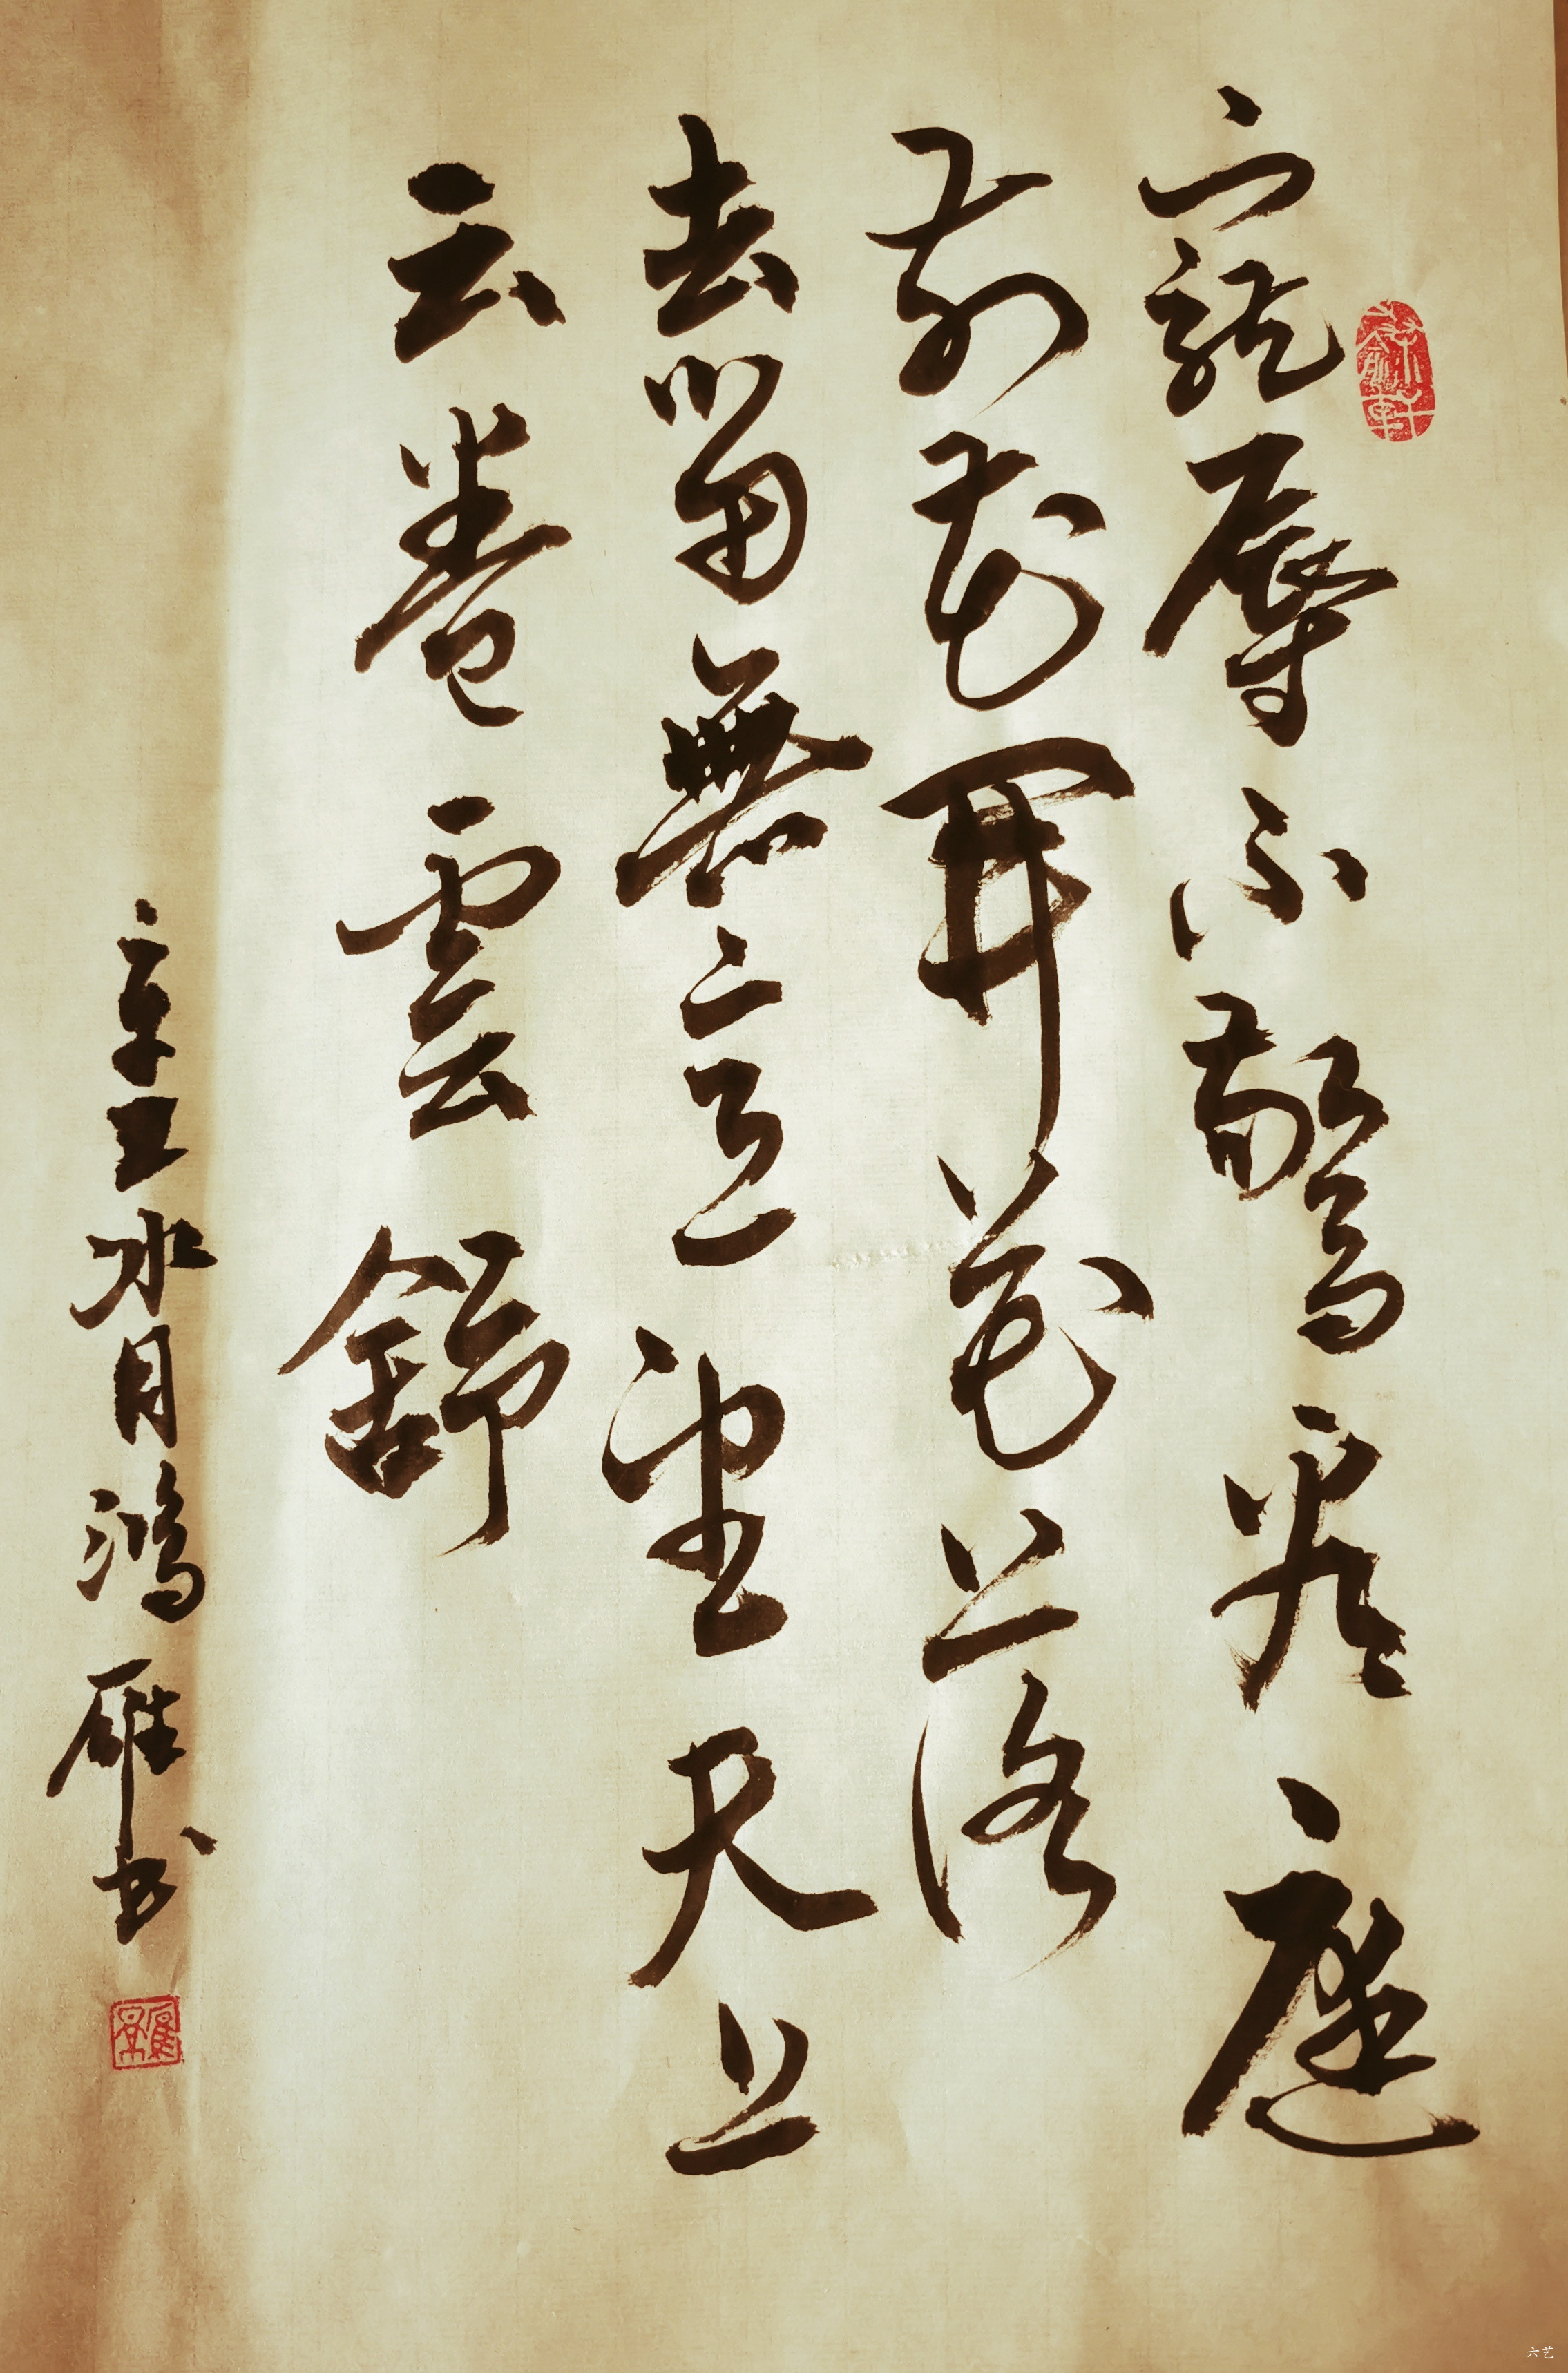 寵辱不驚看庭
前花開花落
去留無意望天上
云卷雲舒
辛丑冰月鸿雁书
六艺